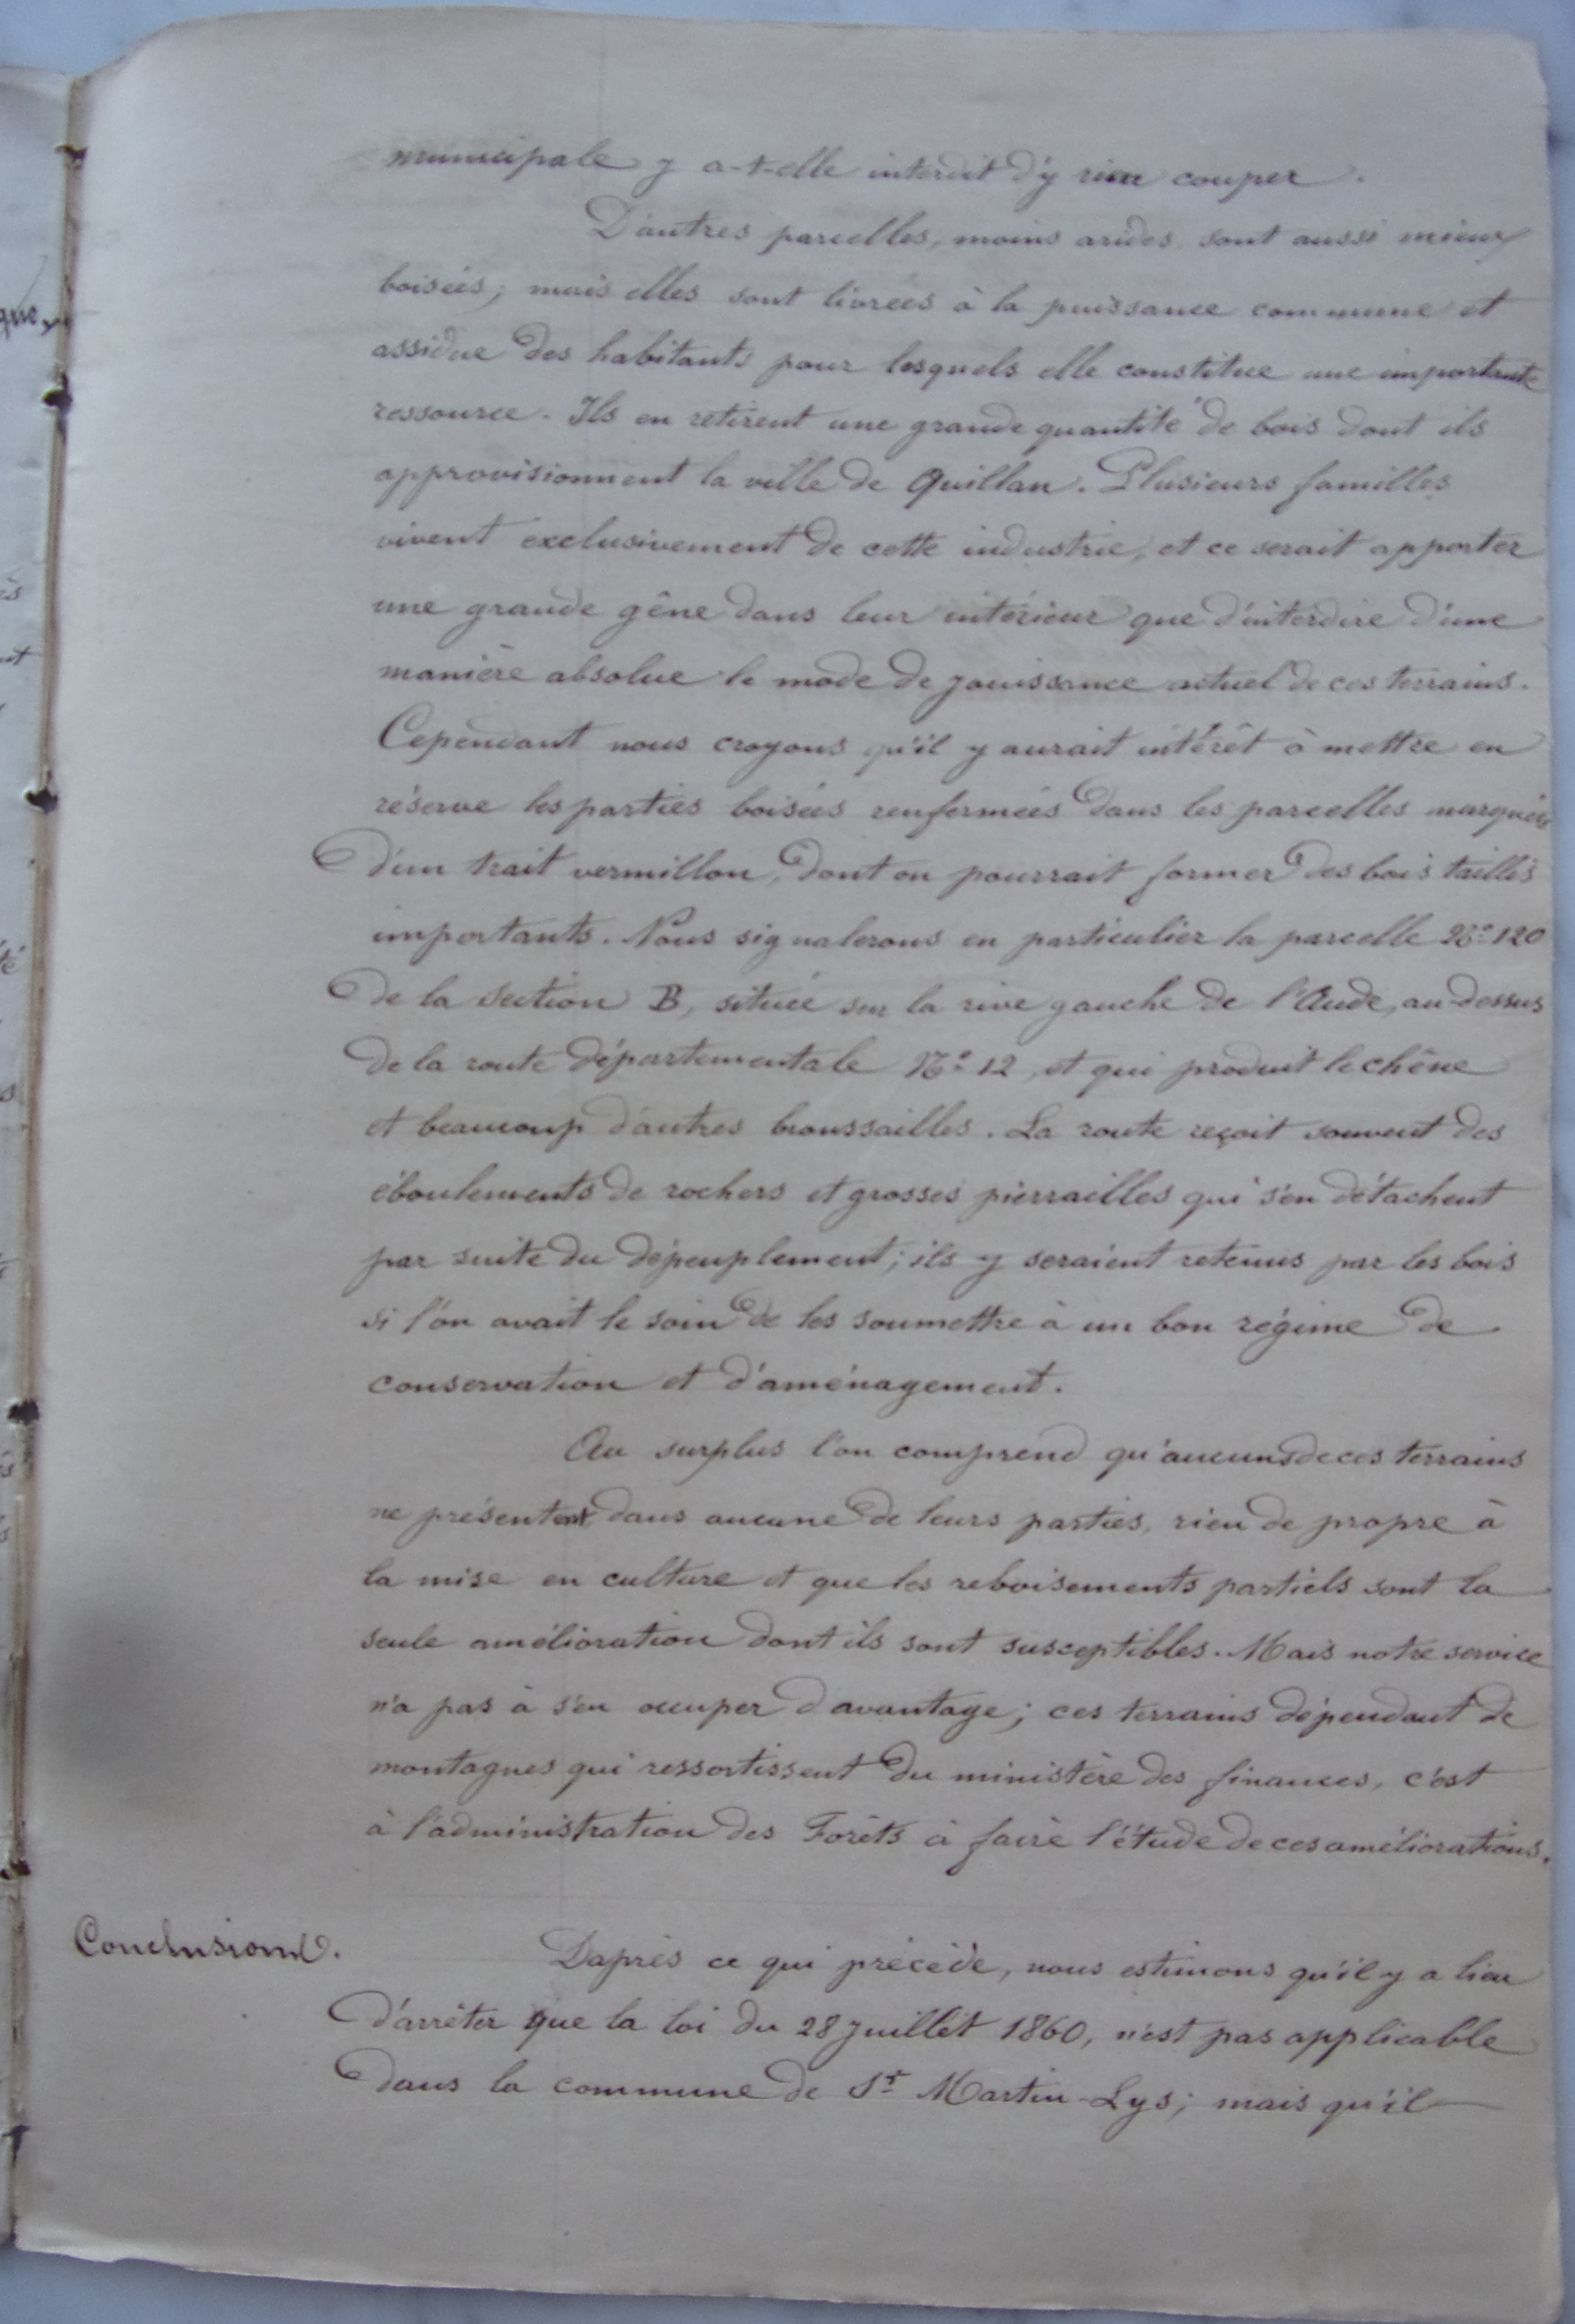 municipale y a-t-elle interdit d'y rien couper.
D'autres parcelles, moins arides, sont aussi mieux
boisées; mais elles sont livrées à la puissance commune et
assidue des habitants pour lesquels elle constitue une importante
ressource. Ils en retirent une grande quantité de bois dont ils
approvisionnent la ville de Quillan. Plusieurs familles
vivent exclusivement de cette industrie, et ce serait apporter
une grande gêne dans leur intérieur que d'interdire d'une
manière absolue le mode de jouissance actuel de ces terrains.
Cependant nous croyons qu'il y aurait intérêt à mettre en
réserve les parties boisées renfermées dans les parcelles marquées
d'un trait vermillon, dont on pourrait former des bois taillis
importants. Nous signalerons en particulier la parcelle N° 120
de la section B, située sur la rive gauche de l'Aude, au-dessus
de la route départementale N° 12, et qui produit le chêne
et beaucoup d'autres broussailles. La route reçoit souvent des
éboulements de rochers et grosses pierrailles qui s'en détachent
par suite du dépeuplement; ils y seraient retenus par les bois
si l'on avait le soin de les soumettre à un bon régime de
conservation et d'aménagement.
Au surplus l'on comprend qu'aucuns de ces terrains
ne présentent dans aucune de leurs parties, rien de propre à
la mise en culture et que les reboisements partiels sont la
seule amélioration dont ils sont susceptibles. Mais notre service
n'a pas à s'en occuper d'avantage; ces terrains dépendant de
montagnes qui ressortissent du ministère des finances, c'est
à l'administration des Forêts à faire l'étude de ces améliorations.
Conclusions.
D'après ce qui précède, nous estimons qu'il y a lieu
d'arrêter que la loi du 28 juillet 1860, n'est pas applicable
dans la commune de St Martin-Lys; mais qu'il